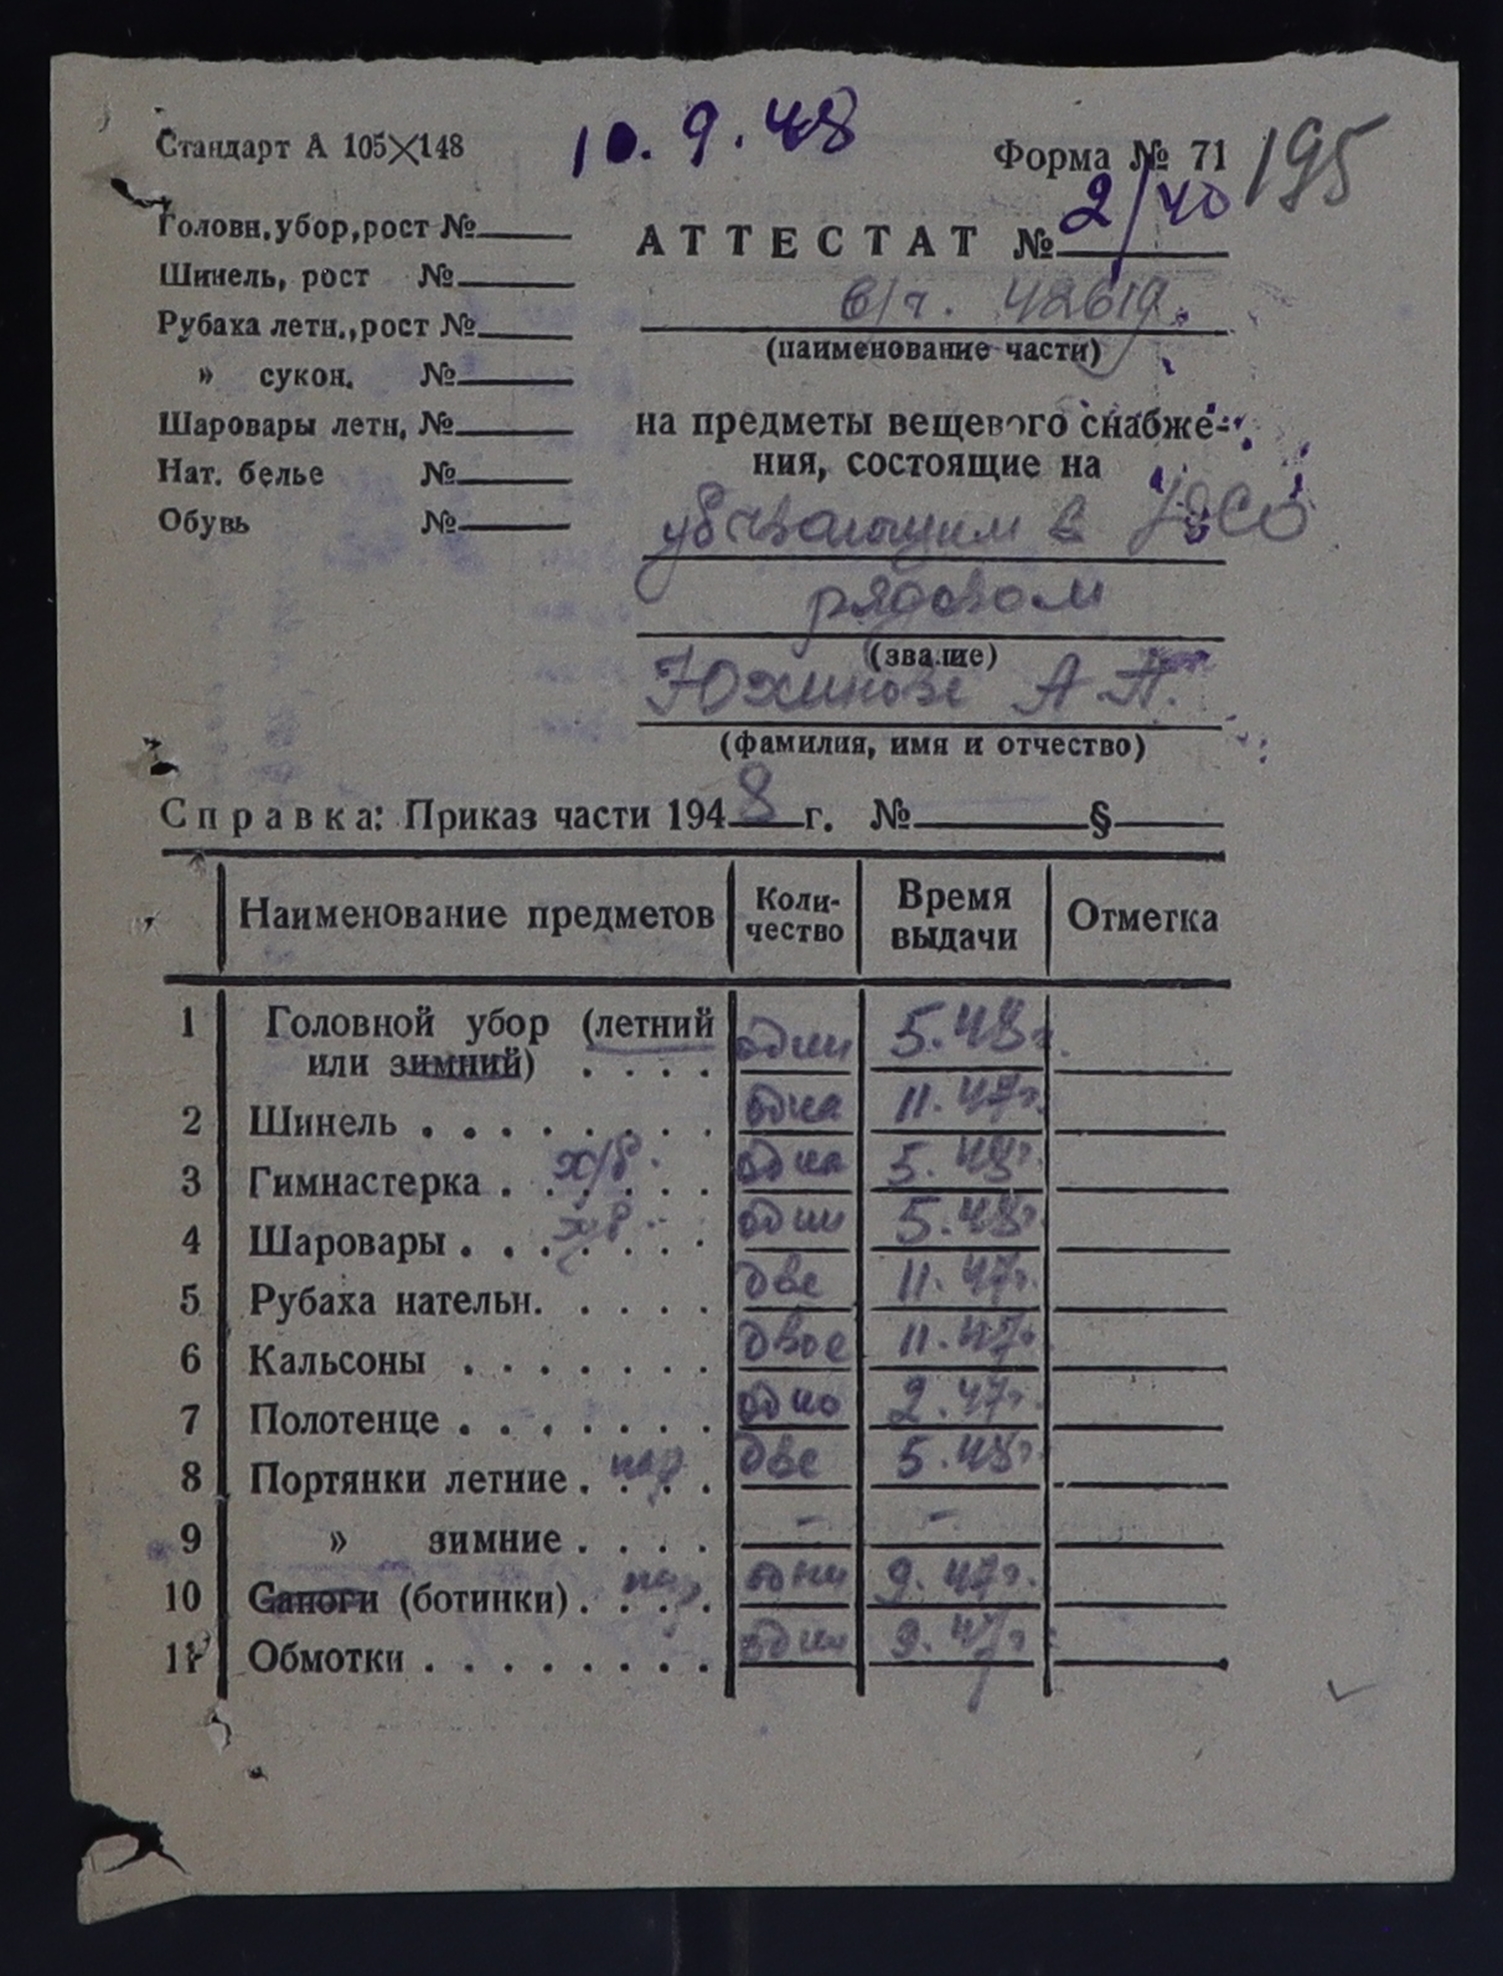 Стандарт А 105×148
10.9.48
Форма № 71
195
Головн. убор, рост №
Шинель, рост №
Рубаха летн., рост №
» сукон. №
Шаровары летн. №
Нат. белье №
Обувь №
АТТЕСТАТ № 2/40
в/ч. 42619.
(наименование части)
на предметы вещевого снабже-
ния, состоящие на
убывающим в
рядовом
(звание)
А. П.
(фамилия, имя и отчество)
Справка: Приказ части 1948 г. № §
Наименование предметов Коли-чество Время выдачи Отметка
1 Головной убор (летний
или зимний) . . . . один 5.48г.
2 Шинель . . . . . . . . одна 11.47г.
3 Гимнастерка . х/б. одна 5.48г.
4 Шаровары . х/б. одни 5.48г.
5 Рубаха нательн. . . . . две 11.47г.
6 Кальсоны . . . . . . . двое 11.47г.
7 Полотенце . . . . . . . одно 2.47г.
8 Портянки летние . пар две 5.48г.
9 » зимние . . . . - -
10 Сапоги (ботинки) . пар. одни 9.47г.
11 Обмотки . . . . . . . . одни 9.47г.